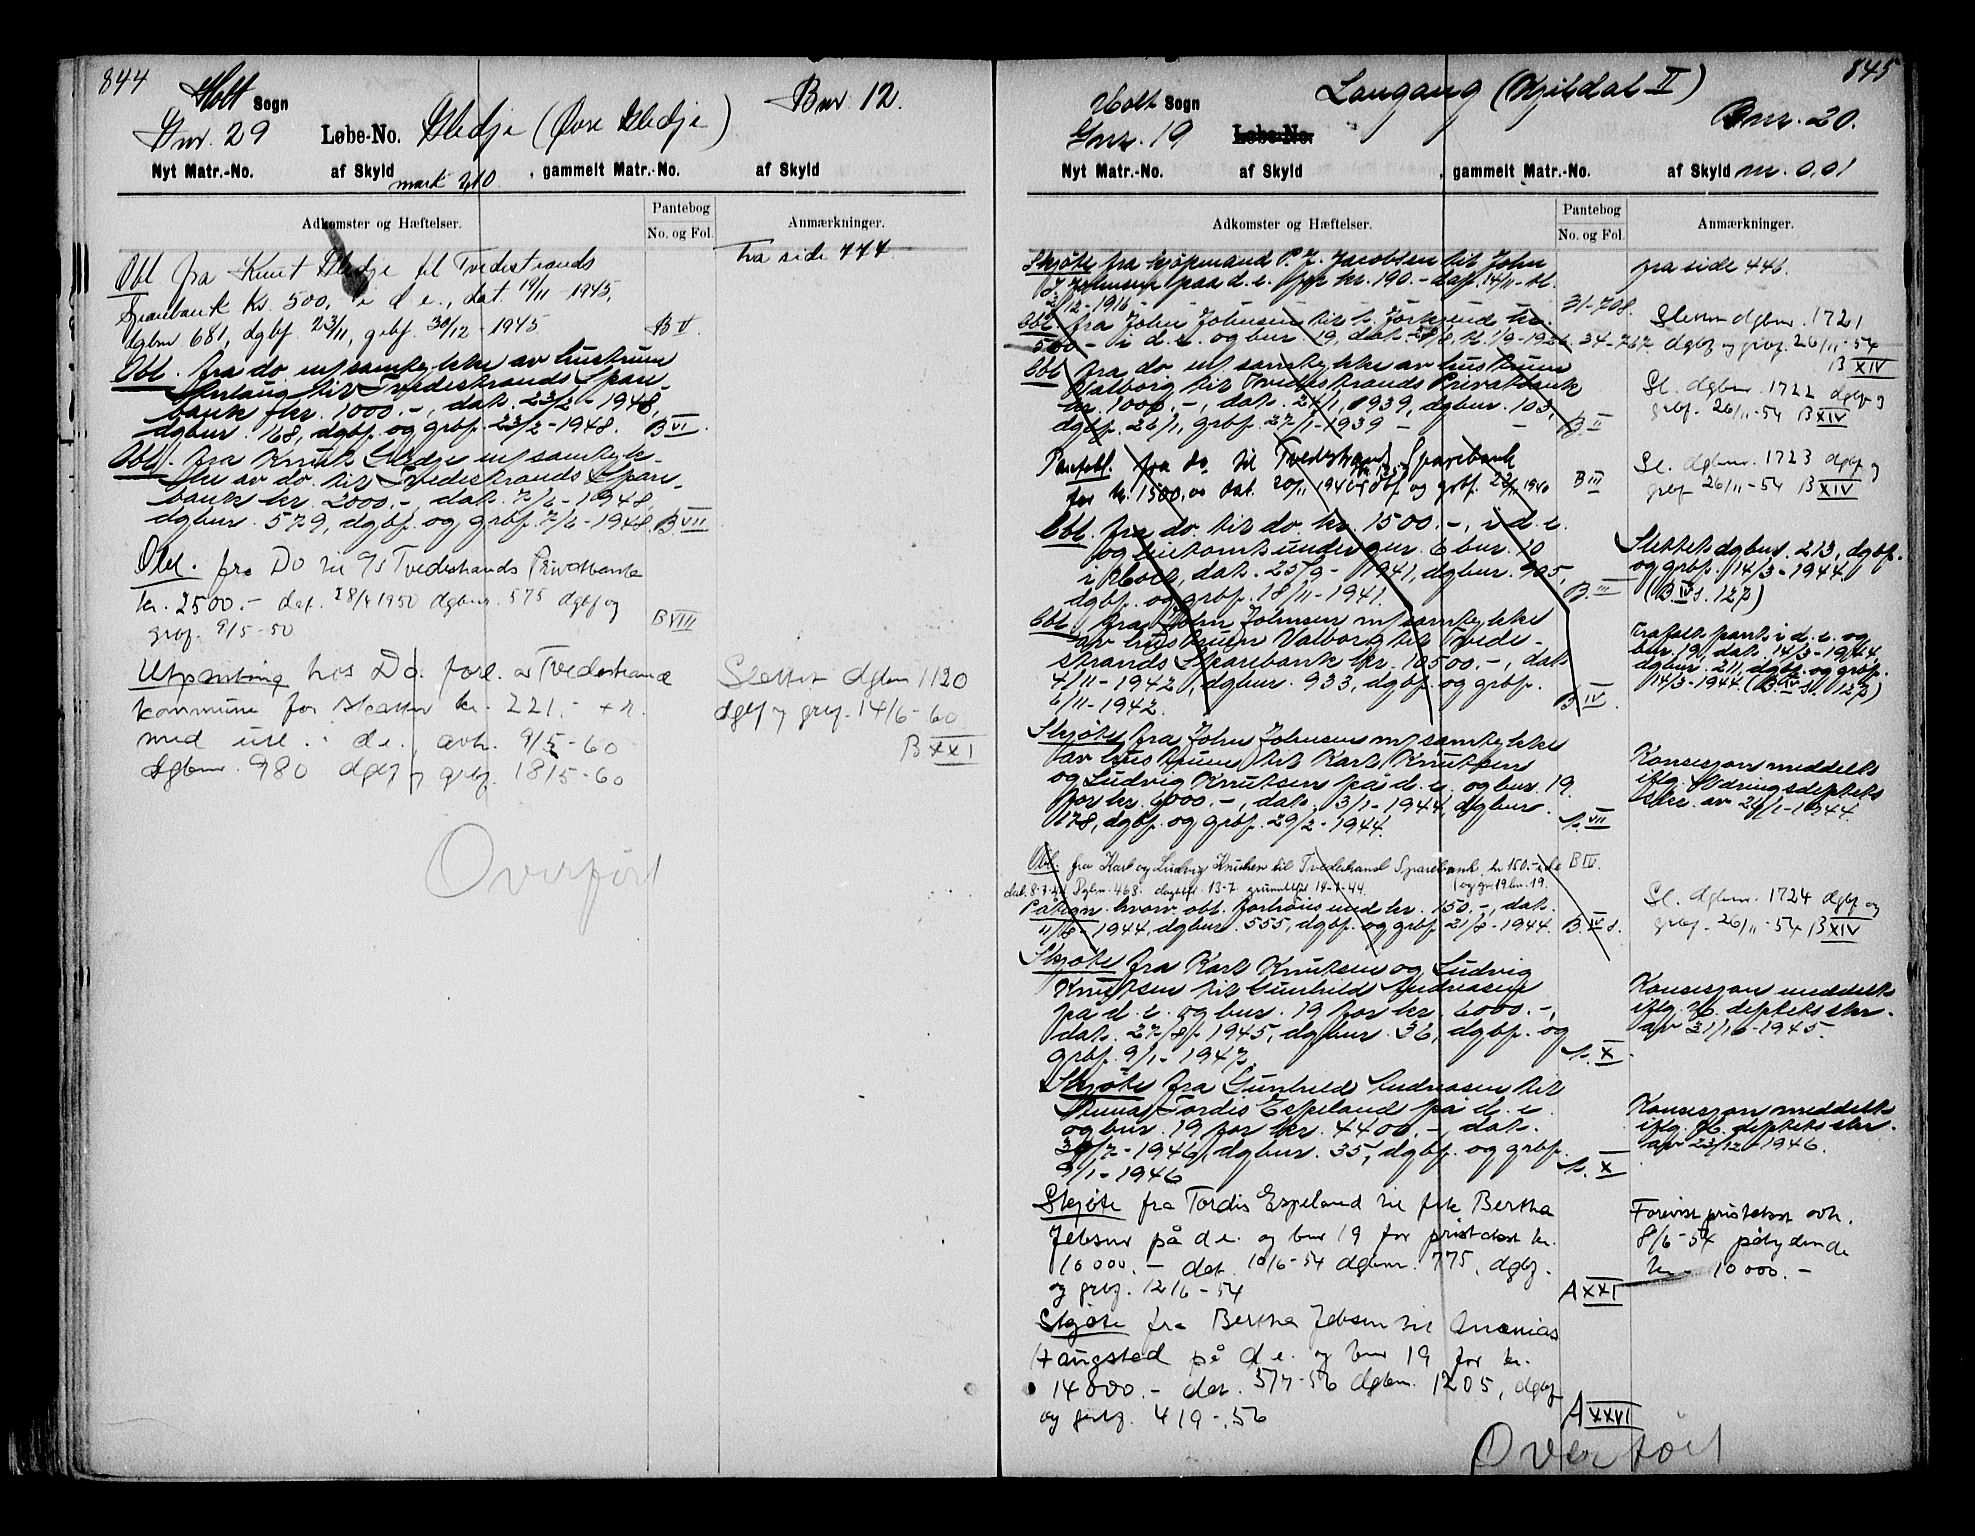 844
Holt Sogn
Bnr 12.
Gnr. 29 Løbe-No. Gledje (Øvre Gledje)
Nyt Matr.-No. af Skyld mark 2,10 , gammelt Matr.-No. af Skyld
Adkomster og Hæftelser. Pantebog No. og Fol. Anmærkninger.
Fra side 444
Obl fra Knut Gledje til Tvedestrands
Sparebank kr 500, i d e., dat 19/11 1945,
dgbnr 681, dgbf. 23/11, grbf. 30/12-1945 B V
Obl. fra do. m/samtykke av hustruen
til Tvedestrands Spare-
bank fkr. 1000.-, dat. 23/2-1948,
dgbnr. 168, dgbf. og grbf. 23/2-1948. B VI.
Obl. fra Knut Gledje m/samtyk-
ke av do. til Tvedestrands Spare-
bank kr. 2000.-, dat. 7/6-1948,
dgbnr. 579, dgbf. og grbf. 7/6-1948. B VII
Obl. fra Do til A/S Tvedestrands Privatbank
kr. 2500.- dat. 28/4 1950 dgbnr. 575 dgbf og
grbf. 9/5-50 B VIII
Utpanting hos Do. forl. av Tvedestrand
kommune for skatter kr. 221.- + r.
med utl. i d.e., avh. 9/5-60
dgbnr. 980 dgbf og grbf. 18/5-60
Slettet dgbnr 1120
dgbf og grbf. 14/6-60
B XXI
Overført
845
Holt Sogn
Langang (Kjildal II)
Gnr. 19 Løbe-No.
Bnr. 20.
Nyt Matr.-No. af Skyld , gammelt Matr.-No. af Skyld m. 0,01
Adkomster og Hæftelser. Pantebog No. og Fol. Anmærkninger.
fra side 446.
Skjøte fra kjøpmand P. Z. Jacobsen til John
J. Johnsen paa d.e. for kr. 190.- dat. 14/11- tl.
2/12-1916 31-708.
Obl. fra John Johnsen til kr.
500.- i d.e. og bnr. 19, dat. 28/8, tl. 1/9-1926. 34-767
Slettet dgbnr. 1721
dgbf og grbf. 26/11-54
B XIV
Obl. fra do m/samtykke av hustruen
Valborg til Tvedestrands Privatbank
kr. 1000.-, dat. 24/1, 1939, dgbnr. 103,
dgbf. 26/1, grbf. 27/1-1939 - B. II
Sl. dgbnr. 1722 dgbf og
grbf. 26/11-54 B XIV
Panteobl. fra do til Tvedestrand Sparebank
for kr. 1500,00 dat. 20/11 1940 dgbf. og grbf. 22/11 1940 B III
Sl. dgbnr. 1723 dgbf og
grbf 26/11-54 B XIV
Obl. fra do. til do kr. 1500.-, i d.e.
og under gnr. 6 bnr. 10
i Holt, dat. 25/9-1941, dgbnr. 905,
dgbf. og grbf. 18/11-1941. B. III
Slettet dgbnr. 213, dgbf.
og grbf. 14/3-1944
(B IV s. 127)
Obl. fra John Johnsen m/samtykke
av hustruen Valborg til Tvede-
strands Sparebank kr. 10500.-, dat.
4/11-1942, dgbnr. 933, dgbf. og grbf.
6/11-1942. B IV.
Frafalt pant i d.e. og
bnr. 19, dat. 14/3-1944
dgbnr. 211, dgbf. og grbf.
14/3-1944. (B IV s. 127)
Skjøte fra John Johnsen m/samtykke
av hustruen til Karl Knutsen
og Ludvig Knutsen på d.e. og bnr. 19
for kr. 6000.-, dat. 3/1-1944, dgbnr.
178, dgbf. og grbf. 29/2-1944. A. VII
Konsesjon meddelt
iflg. Næringsdeptets
skr. av 21/1-1944.
Obl. fra Karl og Ludvig Knutsen til Tvedestrand Sparebank kr 150.- i d.e. B IV.
dat. 8-3-44 Dgbnr. 468. dagbf. 13-7 grunnbf. 14-7-44. (og gnr 19 bnr. 19.
Påtegn. hvorv. obl. forhøies med kr. 150.-, dat.
11/8-1944, dgbnr. 555, dgbf. og grbf. 21/8-1944. B. IV s.
Sl. dgbnr. 1724 dgbf og
grbf. 26/11-54 B XIV
Skjøte fra Karl Knutsen og Ludvig
Knutsen til Gunhild Andreasen
på d.e. og bnr. 19 for kr. 6000.-,
dat. 27/8 1945, dgbnr. 36, dgbf. og
grbf. 9/1-1947 A. X
Konsesjon meddelt
iflg. deptets skr.
av 31/10-1945.
Skjøte fra Gunhild Andreasen til
Tordis Espeland på d.e.
og bnr. 19 for kr. 4400.-, dat.
30/7-1946, dgbnr. 35, dgbf. og grbf.
9/1-1946 A. X
Konsesjon meddelt
iflg. deptets skr.
av 23/12-1946.
Skjøte fra Tordis Espeland til frk Bertha
Jebsen på d e. og bnr 19 for pristakst kr.
10000.- dat. 10/6-54 dgbnr. 775, dgbf.
og grbf. 12/6-54 A XXI
Forevist pristakst avh.
8/6-54 pålydende
kr. 10000.-
Skjøte fra Bertha Jebsen til Ananias
Haugsted på d.e. og bnr 19 for kr.
14000.- dat. 5/7-56 dgbnr. 1205, dgbf
og grbf. 4/9-56 A XXVI
Overført